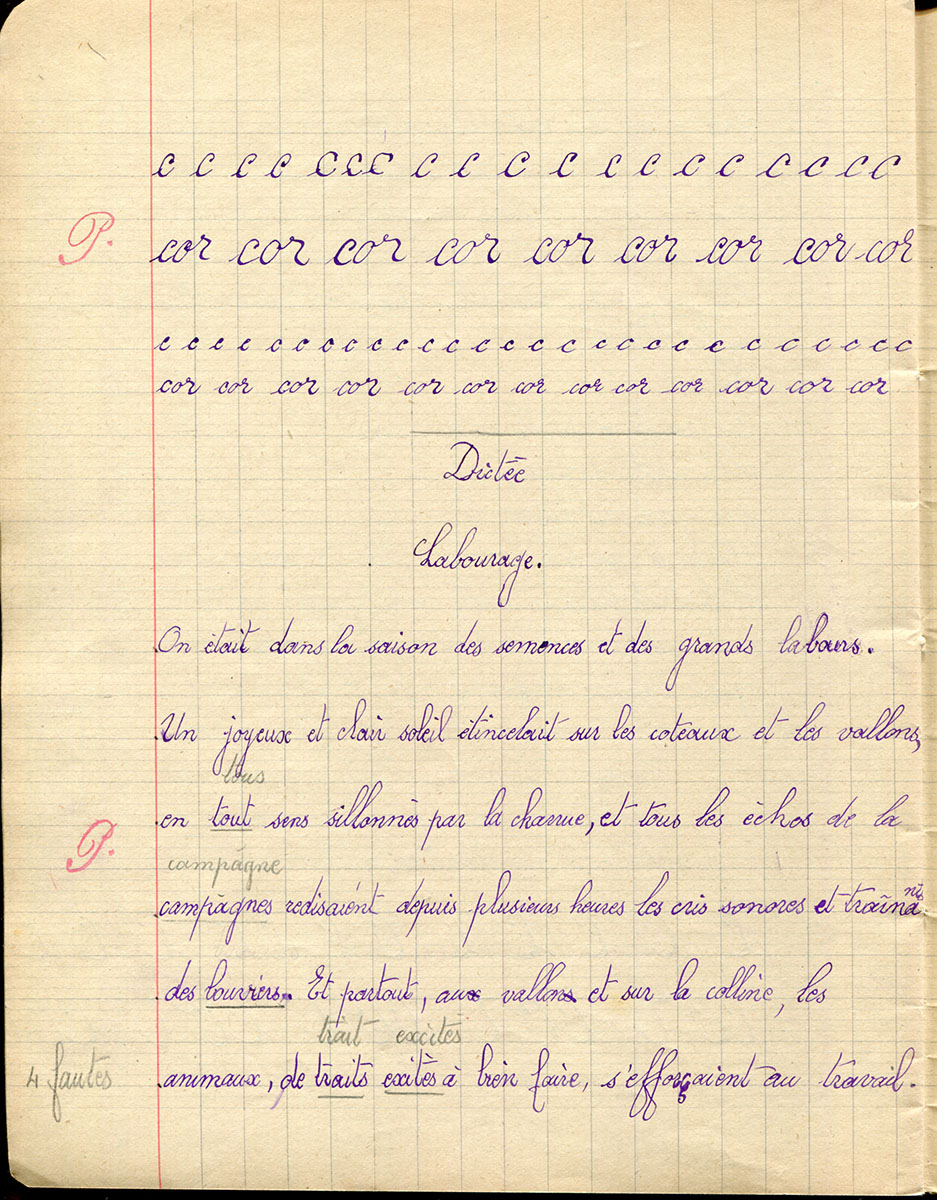 c c c c c c c c c c c c c c c c c c c
P.
cor cor cor cor cor cor cor cor cor
c c c c c c c c c c c c c c c c c c c c c c c c c c c
cor cor cor cor cor cor cor cor cor cor cor cor cor
Dictée
Labourage.
On était dans la saison des semences et des grands labours.
Un joyeux et clair soleil étincelait sur les coteaux et les vallons,
tous
en tout sens sillonnés par la charrue, et tous les échos de la
P.
campagne
campagnes redisaient depuis plusieurs heures les cris sonores et traînants
des bouviers. Et partout, aux vallons et sur la colline, les
trait excités
4 fautes
animaux, de traits exités à bien faire, s'efforçaient au travail.